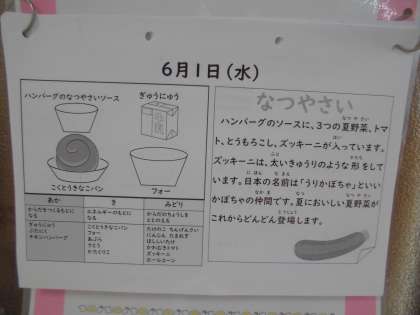 6月1日(水)
ハンバーグのなつやさいソース
ぎゅうにゅう
こくとうきなこパン
フォー
あか
き
みどり
からだをつくるもとに
なる
エネルギーのもとに
なる
からだのちょうしを
ととのえる
ぎゅうにゅう
ぶたにく
チキンハンバーグ
こくとうきなこパン
フォー
あぶら
さとう
かたくりこ
たけのこ ちんげんさい
にんじん たまねぎ
ほししいたけ
かわむきトマト
ズッキーニ
ホールコーン
なつやさい
ハンバーグのソースに、3つの夏野菜、トマ
ト、とうもろこし、ズッキーニが入っています。
ズッキーニは、太いきゅうりのような形をして
います。日本の名前は「うりかぼちゃ」といい
かぼちゃの仲間です。夏においしい夏野菜が
これからどんどん登場します。